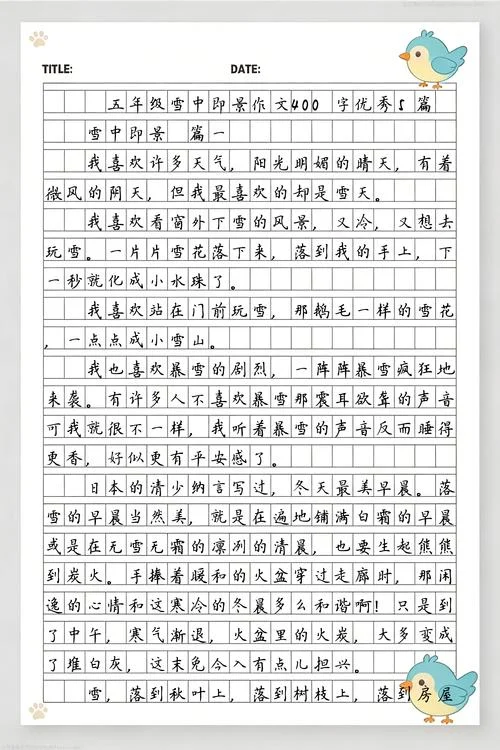 TITLE: DATE:
五年级雪中即景作文400 字优秀5 篇
雪中即景 篇一
我喜欢许多天气，阳光明媚的晴天，有着
微风的阴天，但我最喜欢的却是雪天。
我喜欢看窗外下雪的风景，又冷，又想去
玩雪。一片片雪花落下来，落到我的手上，下
一秒就化成小水珠了。
我喜欢站在门前玩雪，那鹅毛一样的雪花
，一点点成小雪山。
我也喜欢暴雪的剧烈，一阵阵暴雪疯狂地
来袭。有许多人不喜欢暴雪那震耳欲聋的声音
可我就很不一样，我听着暴雪的声音反而睡得
更香，好似更有平安感了。
日本的清少纳言写过，冬天最美早晨。落
雪的早晨当然美，就是在遍地铺满白霜的早晨
或是在无雪无霜的凛冽的清晨，也要生起熊熊
到炭火。手捧着暖和的火盆穿过走廊时，那闲
逸的心情和这寒冷的冬晨多么和谐啊！只是到
了中午，寒气渐退，火盆里的火炭，大多变成
了堆白灰，这未免令人有点儿担兴。
雪，落到秋叶上，落到树枝上，落到房屋